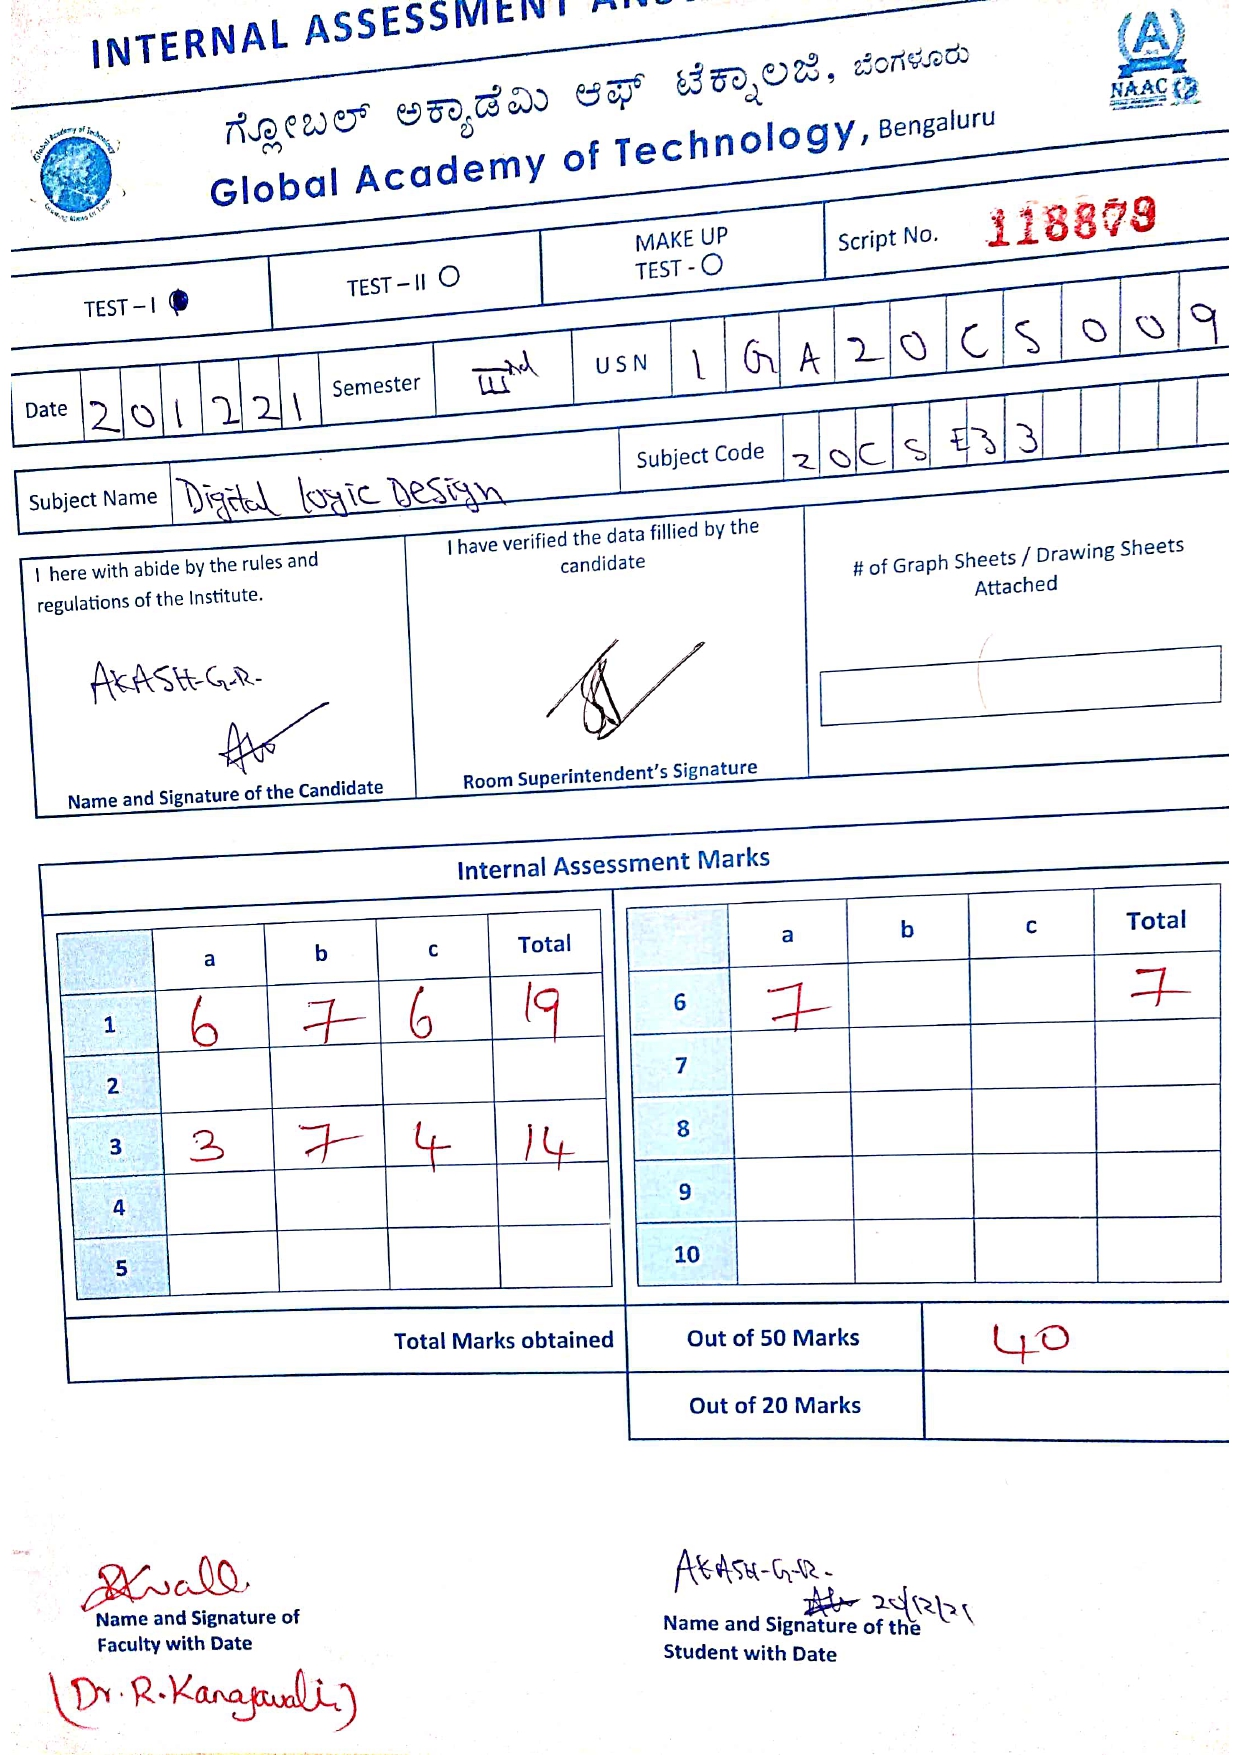 INTERNAL ASSESSMENT
ಗ್ಲೋಬಲ್ ಅಕ್ಯಾಡೆಮಿ ಆಫ್ ಟೆಕ್ನಾಲಜಿ, ಬೆಂಗಳೂರು
Global Academy of Technology, Bengaluru
A
NAAC
TEST – I
TEST – II O
MAKE UP
TEST - O
Script No. 118879
Date 201221
Semester IIIrd
USN 1GA20CS009
Subject Name Digital Logic Design
Subject Code 20CSE33
I here with abide by the rules and
regulations of the Institute.
AKASH-G.R.
Name and Signature of the Candidate
I have verified the data fillied by the
candidate
Room Superintendent's Signature
# of Graph Sheets / Drawing Sheets
Attached
Internal Assessment Marks
a b c Total
1 6 7 6 19
2
3 3 7 4 14
4
5
a b c Total
6 7 7
7
8
9
10
Total Marks obtained
Out of 50 Marks 40
Out of 20 Marks
Name and Signature of
Faculty with Date
(Dr. R. Kanagavalli)
AKASH-G-R.
20/12/21
Name and Signature of the
Student with Date